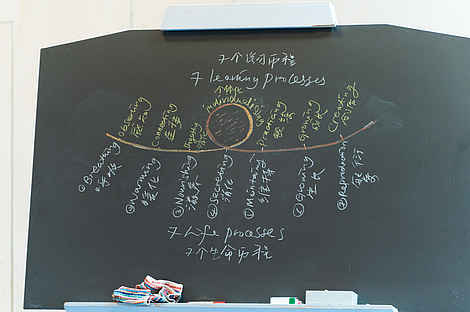 7个学习历程
7 learning processes
个体化
Individualizing
Observing
感动
Connecting
连结
Digesting
Practicing
练习
Growing
成长
Creating
创造
①Breathing
呼吸
②Warming
暖化
③Nourishing
滋养
④Secreting
消化
⑤Maintaining
维持
⑥Growing
生长
⑦Reproducing
繁衍
7 Life processes
7个生命历程